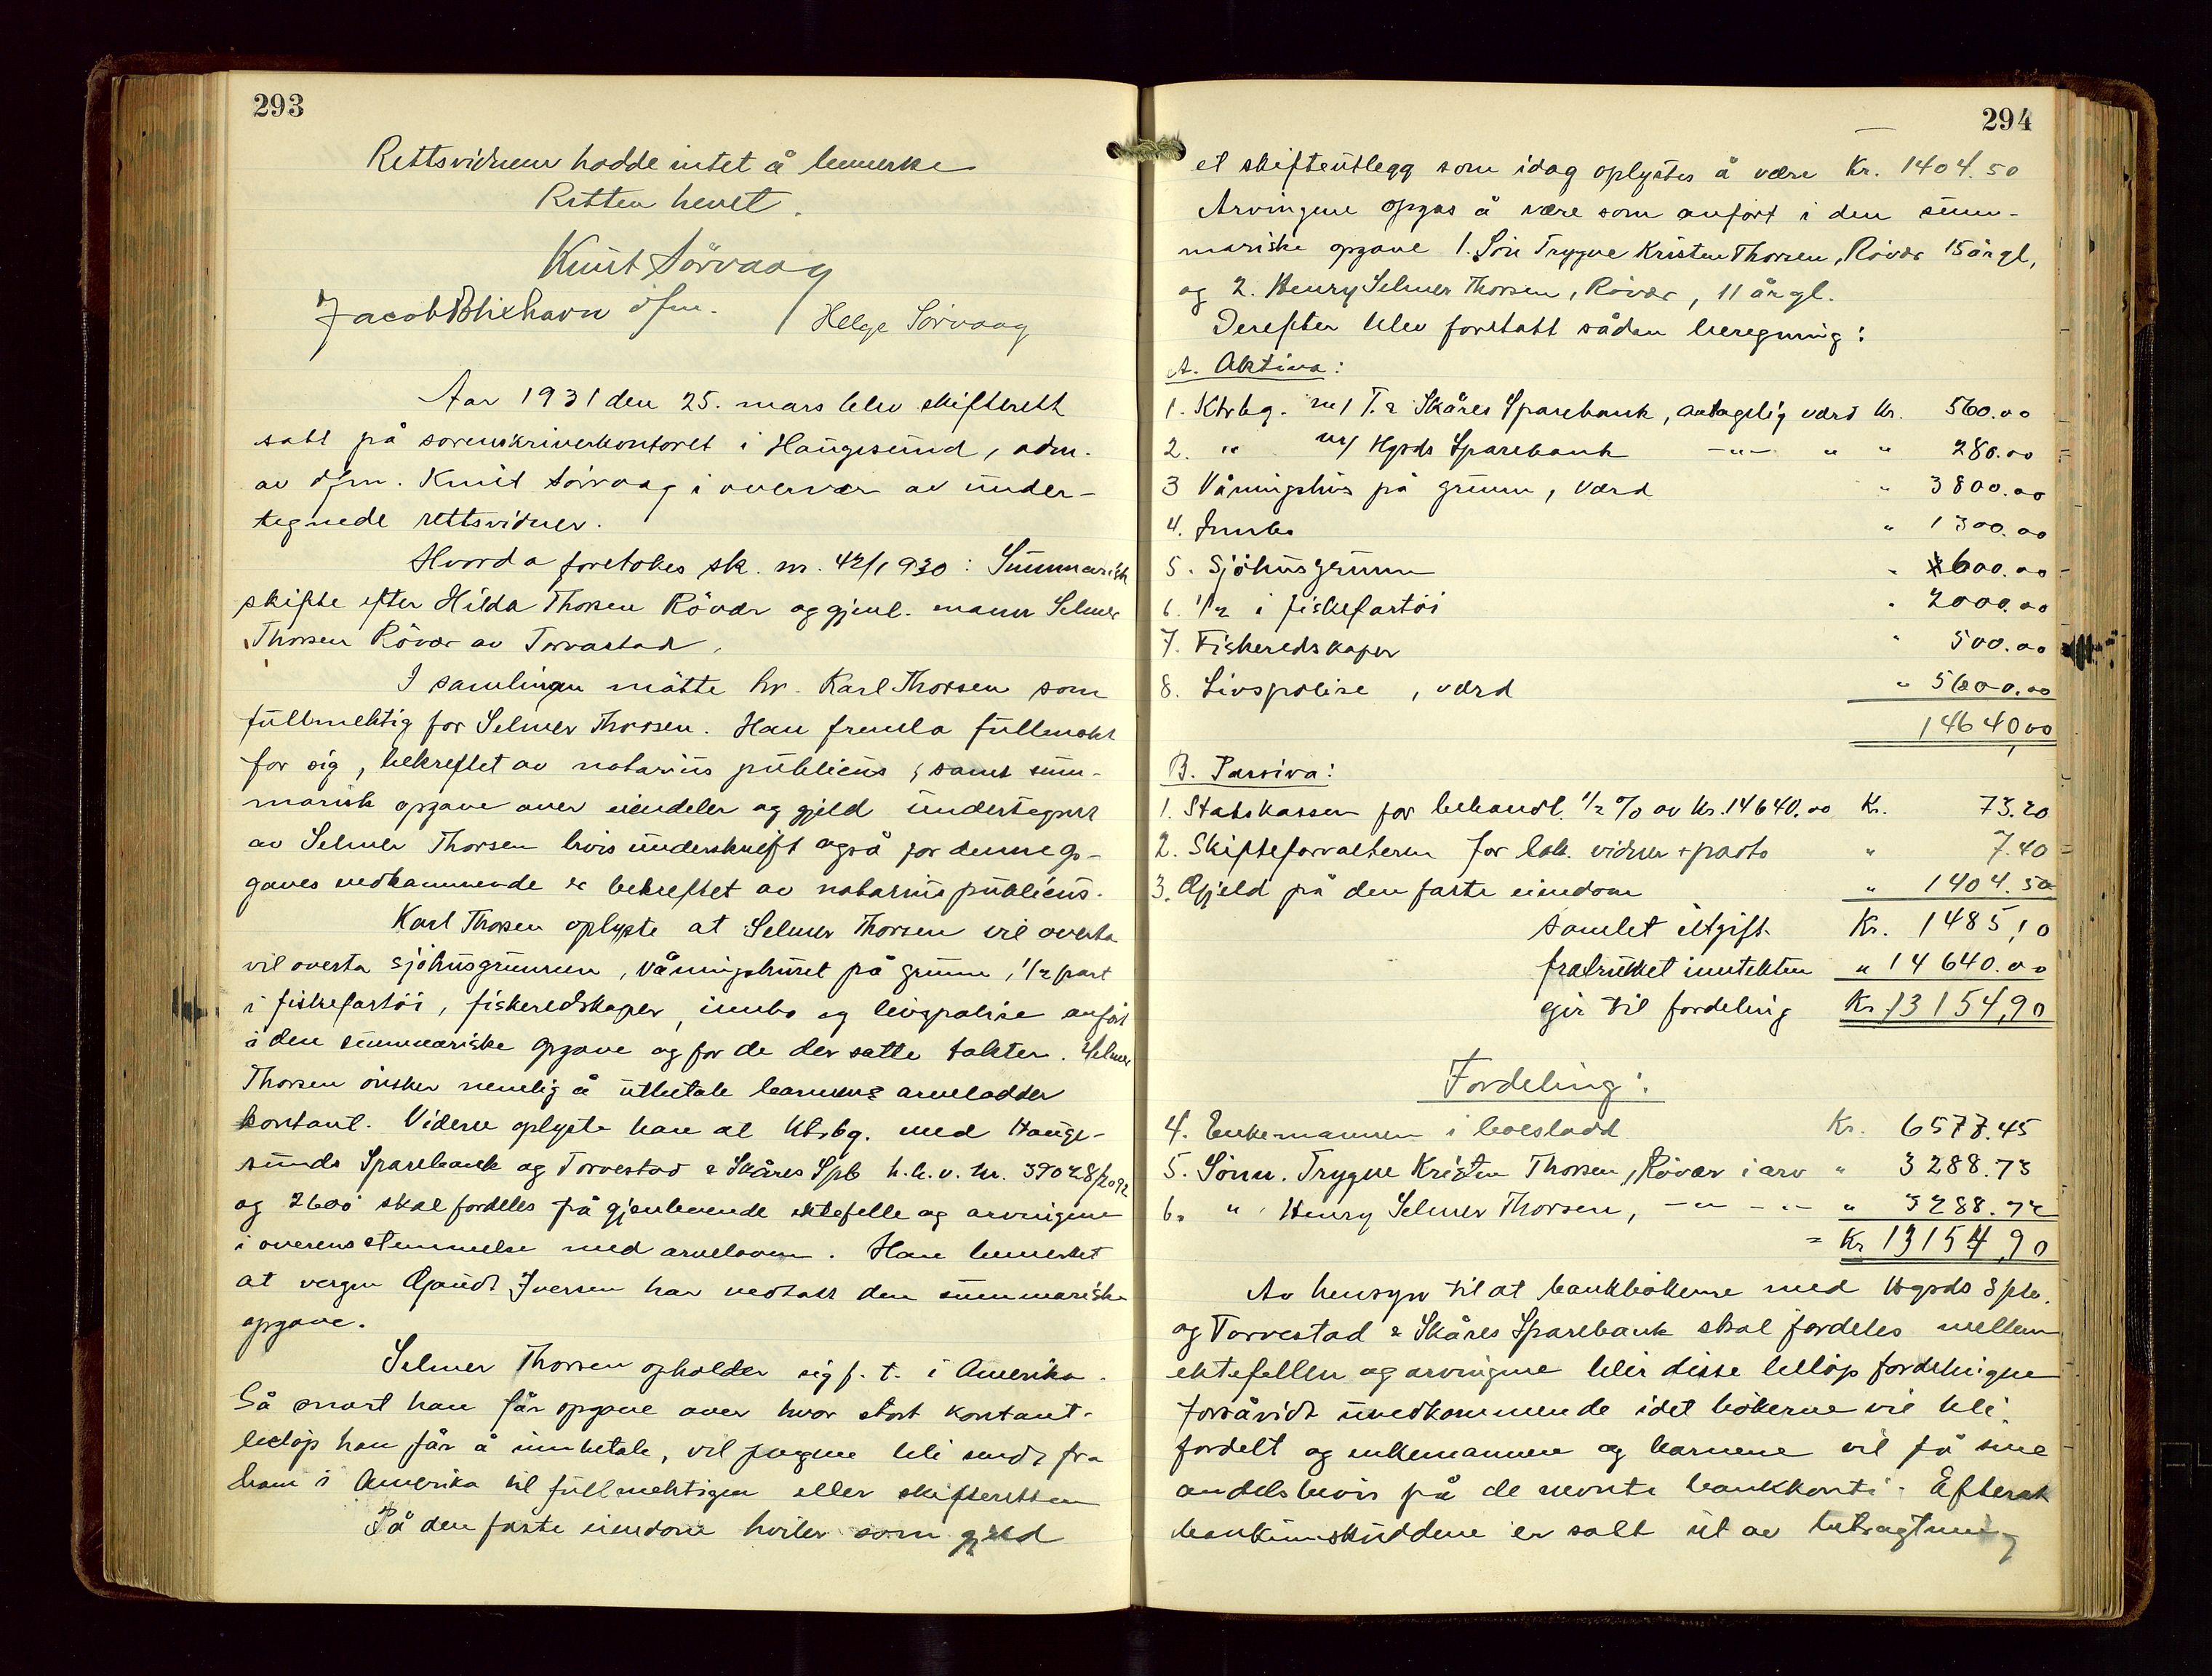 293
Rettsvidnene hadde intet å bemerke
Retten hevet.
Knut Sörvaag
Jacob Blixhavn dfm. Helge Sörvaag
Aar 1931 den 25. mars blev skifterett
satt på sorenskriverkontoret i Haugesund, adm.
av dfm. Knut Sörvaag i overvær av under-
tegnede rettsvidner.
Hvorda foretokes sk. nr. 42/1930: Summarisk
skifte efter Hilda Thorsen Rövær og gjenl. mann Selmer
Thorsen Rövær av Torvastad.
I samlingen mötte hr. Karl Thorsen som
fullmektig for Selmer Thorsen. Han fremla fullmakt
for sig, bekreftet av notarius publicus, samt sum-
marisk opgave over eiendeler og gjeld undertegnet
av Selmer Thorsen hvis underskrift også for denne op-
gaves vedkommende er bekreftet av notarius publicus.
Karl Thorsen oplyste at Selmer Thorsen vil overta
vil overta sjöhusgrunnen, våningshuset på grunn, 1/2 part
i fiskefartöi, fiskeredskaper, innbo og livspolise anfört
i den summariske opgave og for de der satte takster. Selmer
Thorsen önsker nemlig å utbetale barnenes arvelodder
kontant. Videre oplyste han at Ktrbg. med Hauge-
sunds Sparebank og Torvestad & Skåres Spb h.h.v. nr. 39028/2092
og 2600 skal fordeles på gjenlevende ektefelle og arvingene
i overensstemmelse med arveloven. Han bemerket
at vergen Gaudt Iversen har vedtatt den summariske
opgave.
Selmer Thorsen opholder sig f. t. i Amerika.
Så snart han får opgave over hvor stort kontant-
belöp han får å innbetale, vil pengene bli sendt fra
ham i Amerika til fullmektigen eller skifteretten
På den faste eiendom hviler som gjeld
294
et skifteutlegg som idag oplystes å være Kr. 1404.50
Arvingene opgas å være som anfört i den sum-
mariske opgave 1. Sön Trygve Kristen Thorsen, Rövær 15 år gl,
og 2. Henry Selmer Thorsen, Rövær, 11 år gl.
Derefter blev foretatt sådan beregning:
A. Aktiva:
1. Ktrbg. m/ T. & Skåres Sparebank, antagelig værd Kr. 560.00
2. " m/ Hgsds Sparebank -"- " " 280.00
3 Våningshus på grunn, Værd " 3800.00
4. Innbo " 1300.00
5. Sjöhusgrunn " 600.00
6. 1/2 i fiskefartöi " 2000.00
7. Fiskeredskaper " 500.00
8. Livspolise, værd " 5600.00
14640,00
B. Passiva:
1. Statskassen for behandl. 1/2 % av Kr. 14640.00 Kr. 73.20
2. Skifteforvalteren for lok. vidner + porto " 7.40
3. Gjeld på den faste eiendom " 1404.50
samlet utgift Kr. 1485,10
fratrukket inntekten " 14640.00
gir til fordeling Kr. 13154,90
Fordeling:
4. Enkemannen i boeslodd Kr. 6577.45
5. Sönn. Trygve Kristen Thorsen, Rövær i arv " 3288.73
6. " Henry Selmer Thorsen, -"- -"- " 3288.72
= Kr 13154,90
Av hensyn til at bankbökerne med Hgsds Spb.
og Torvestad & Skåres Sparebank skal fordeles mellem
ektefellen og arvingene blir disse belöp fordelingene
forsåvidt uvedkommende idet bökerne vil bli
fordelt og enkemannen og barnene vil få sine
andelsbevis på de nevnte bankkonti. Efterat
bankinnskuddene er satt ut av betragtning